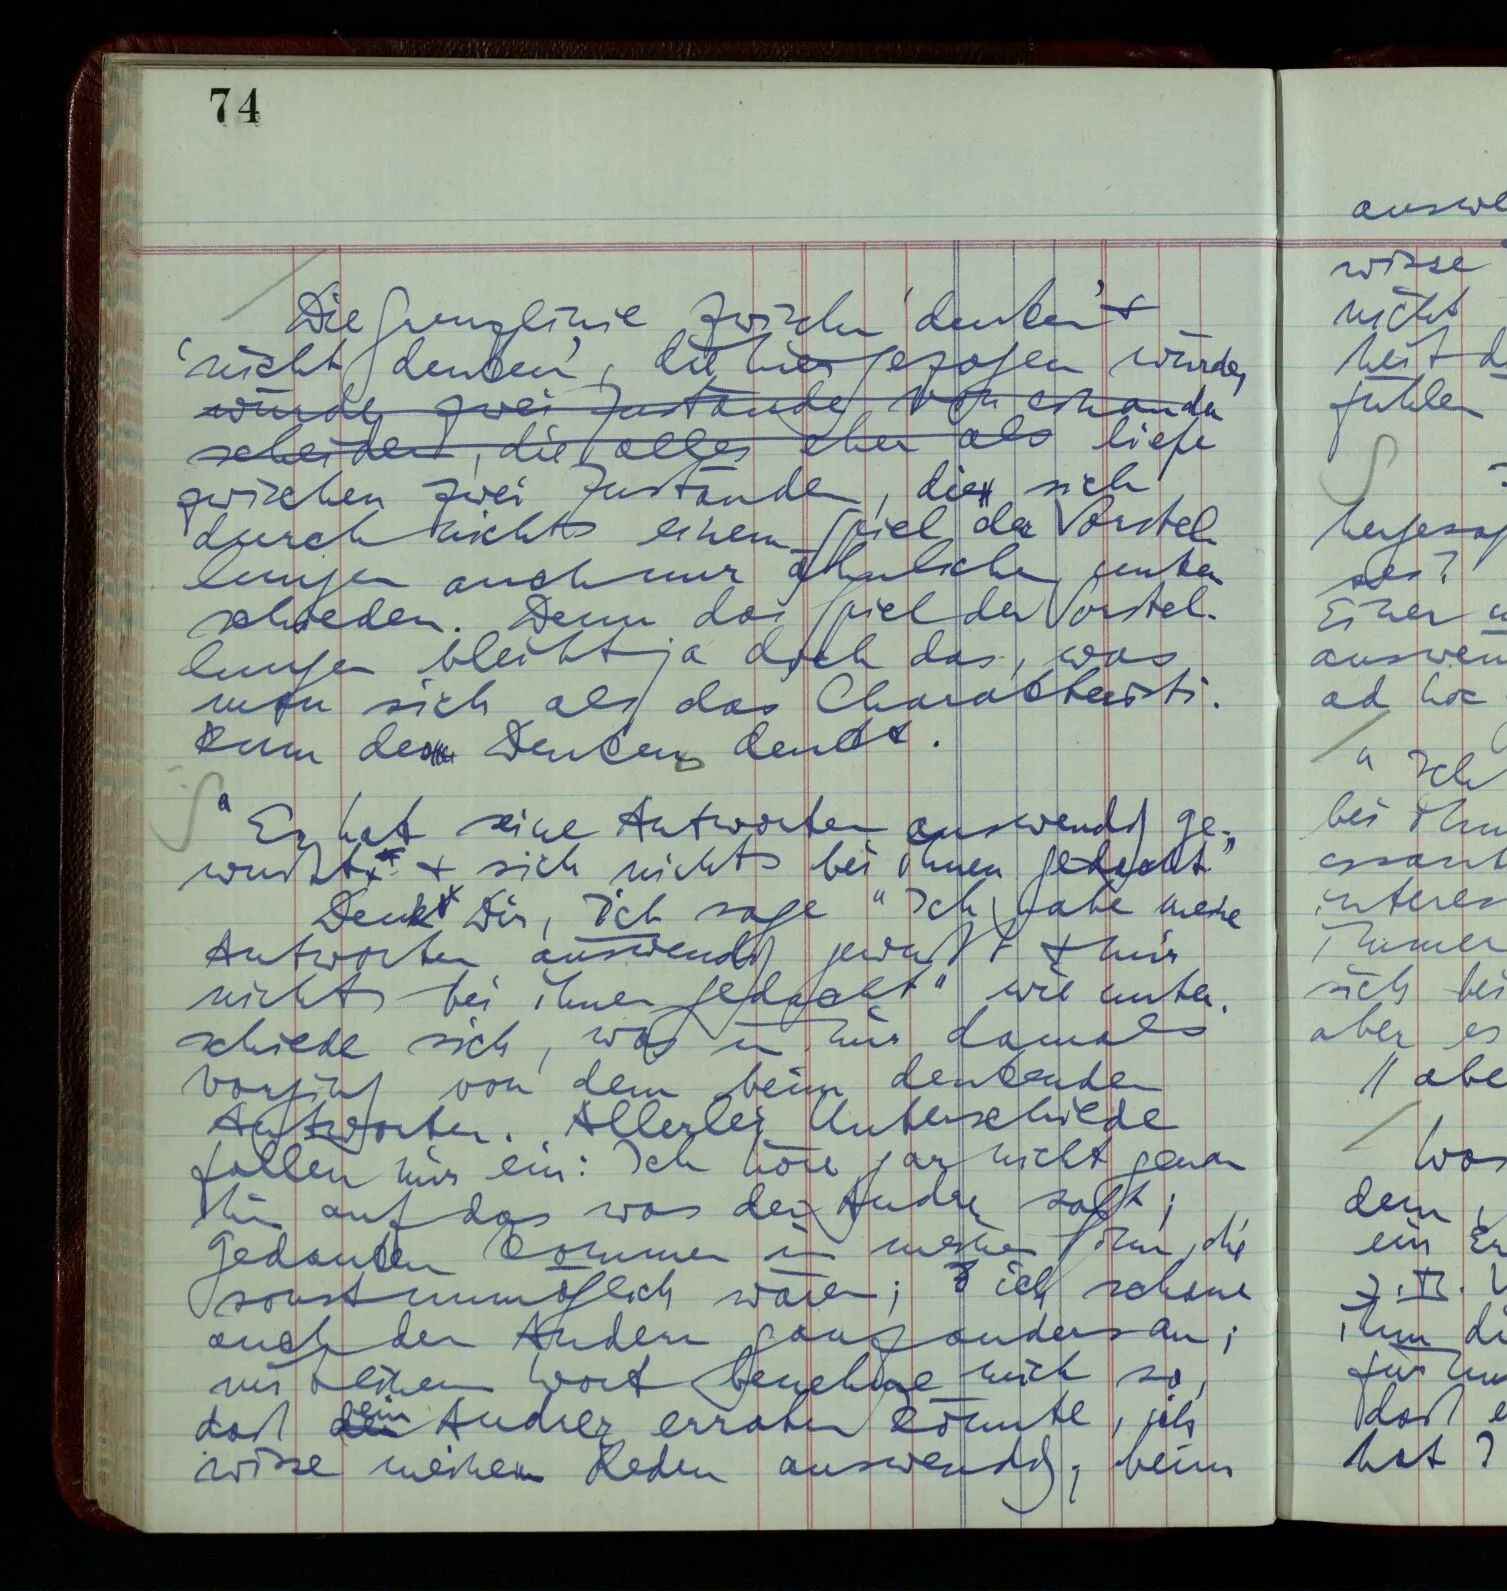 74
Die Grenzlinie zwischen 'denken' +
'nicht denken', die hier gezogen würde,
würde zwei Zustände von einander
scheiden, die alles eher als liefe
zwischen zwei Zuständen, die sich
durch nichts einem Spiel der Vorstel-
lungen auch nur ähnliches unter
schieden. Denn das Spiel der Vorstel-
lungen bleibt ja doch das, was
man sich als das Charakteristi-
kum des Denkens denkt.
"Er hat seine Antworten auswendig ge-
wußt + sich nichts bei ihnen gedacht"
Denk Dir, ich sage "Ich habe meine
Antworten auswendig gewußt + mir
nichts bei ihnen gedacht" wie unter-
schiede sich, was in mir damals
vorging von dem beim denkenden
Antworten. Allerlei Unterschiede
fallen mir ein: Ich höre gar nicht genau
hin auf das was der Andre sagt;
Gedanken kommen in meinen Sinn, die
sonst unmöglich wären; ich schaue
auch den Andern ganz anders an;
mit einem Wort benehme mich so,
daß ein Andrer erraten könnte, ich
wisse meine Reden auswendig; beim
wisse
nicht
fühlen
ses?
Einer
ad hoc
"Ich
bei ihm
immer
sich bei
aber es
// abe
Was
dem,
ein Er
z.B.
ihm di
für
daß e
hat?